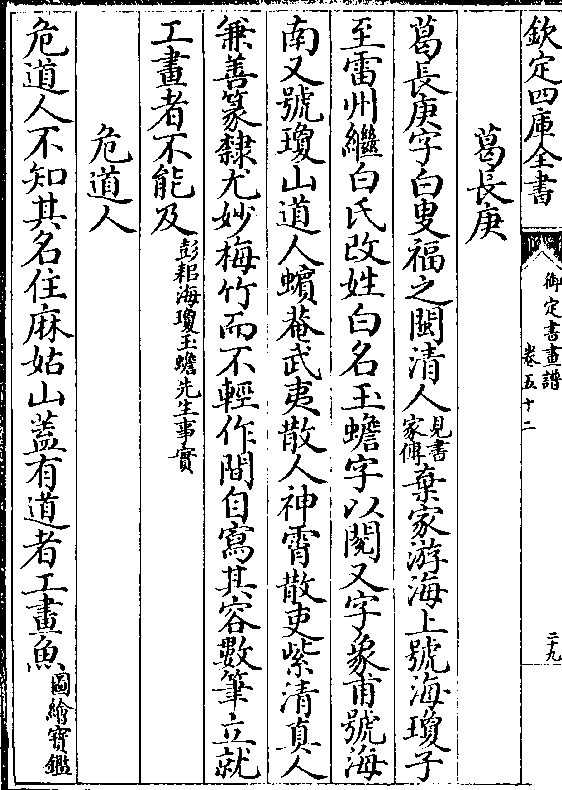 欽定四庫全書
御定書畫譜
卷五十二
二十九
葛長庚
葛長庚字白叟福之閩清人見書家傳棄家游海上號海瓊子
至雷州繼白氏改姓白名玉蟾字以閱又字象甫號海
南又號瓊山道人蠙菴武夷散人神霄散吏紫清真人
兼善篆隸尤妙梅竹而不輕作間自寫其容數筆立就
工畫者不能及彭耜海瓊玉蟾先生事實
危道人
危道人不知其名住麻姑山蓋有道者工畫魚圖繪寶鑑